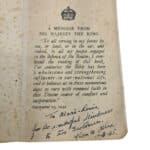 A MESSAGE FROM
HIS MAJESTY THE KING.
To all serving in my forces by
sea, or land, or in the air, and
indeed, to all my people engaged
in the defence of the Realm, I com-
mend the reading of this book.
For centuries the Bible has been
a wholesome and strengthening
influence in our national life,
and it behoves us in these momen-
tous days to turn with renewed
faith to this Divine source of
comfort and inspiration.
September 15, 1939
To
for a wonderful kindness
to